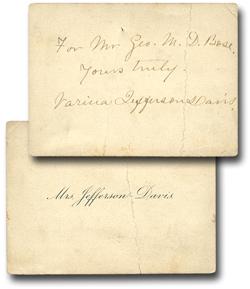 For Mr Geo. M. D. Bose.
Yours truly.
Varina Jefferson Davis.
Mrs. Jefferson Davis